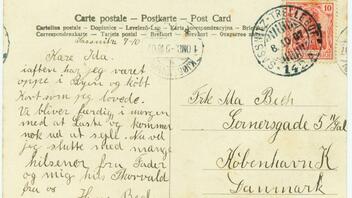 Carte postale - Postkarte - Post Card
Cartolina postale - Dopisnice - Levelező-Lap - Karta korespondencyjna
Correspondenzkarte - Tarjeta postal - Brefkort - Brevkort
Sassnitz 7-10
Kære Ida.
iaften har jeg været
oppe i Byen og købt
Kort som jeg lovede.
Vi bliver færdig i morgen
med at Laste og kommer
nok ud at sejle. Nu vil
jeg slutte med mange
hilsener fra Fader
og mig hils Thorvald
fra os
Beck
SASSNITZ-TRELLEBORG
8.10.07
10
Frk Ida Bech
5
København K
Danmark